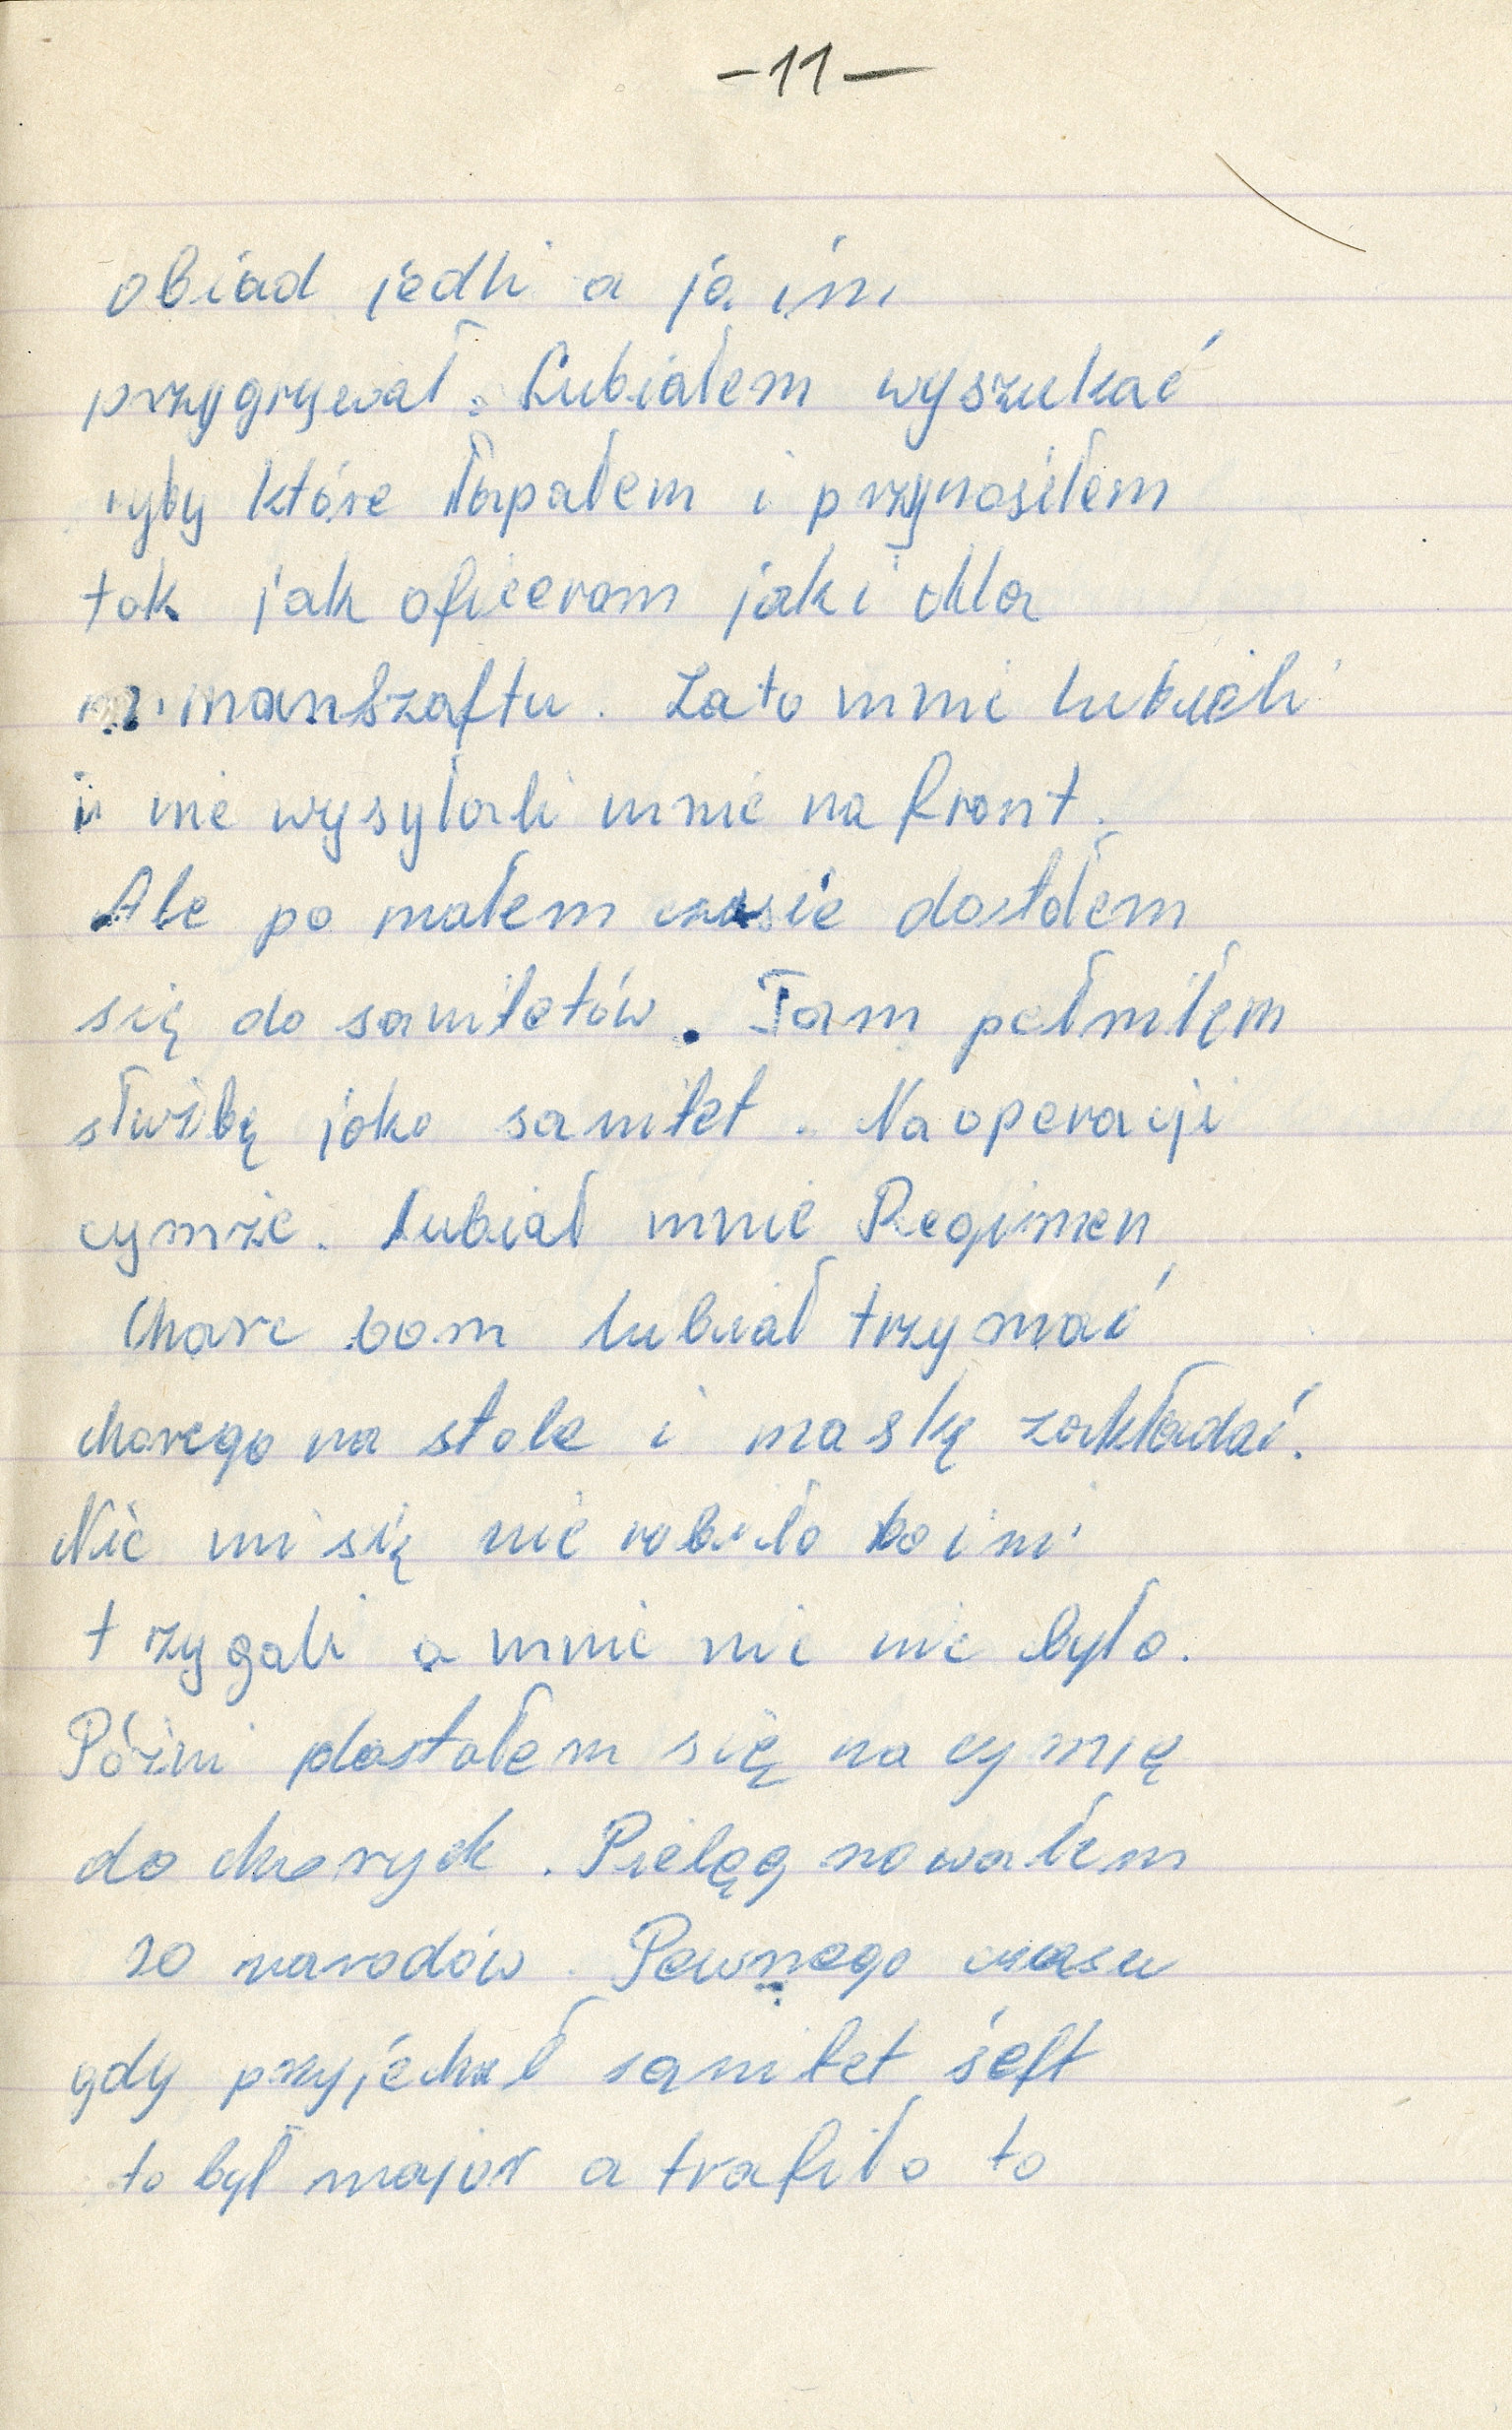 -11-
obiad jedli a ja im
przygrywał. Lubiałem wyszukać
ryby które łapałem i przynosiłem
tak jak oficerom jak i dla
manszaftu. Zato mnie lubieli
i nie wysyłali mnie na front.
Ale po małem czasie dostałem
się do sanitetów. Tam pełniłem
służbę jako sanitet. Na operacji
cymrze. Lubiał mnie Regimen
chare bom lubiał trzymać
chorego na stole i maskę zakładać.
Nic mi się nie robiło bo inni
rzygali a mnie nic nie było.
Późni dostałem się na cymrę
do chorych. Pielęgnowałem
10 narodów. Pewnego czasu
gdy przyjechał sanitet śeft
to był major a trafiło to